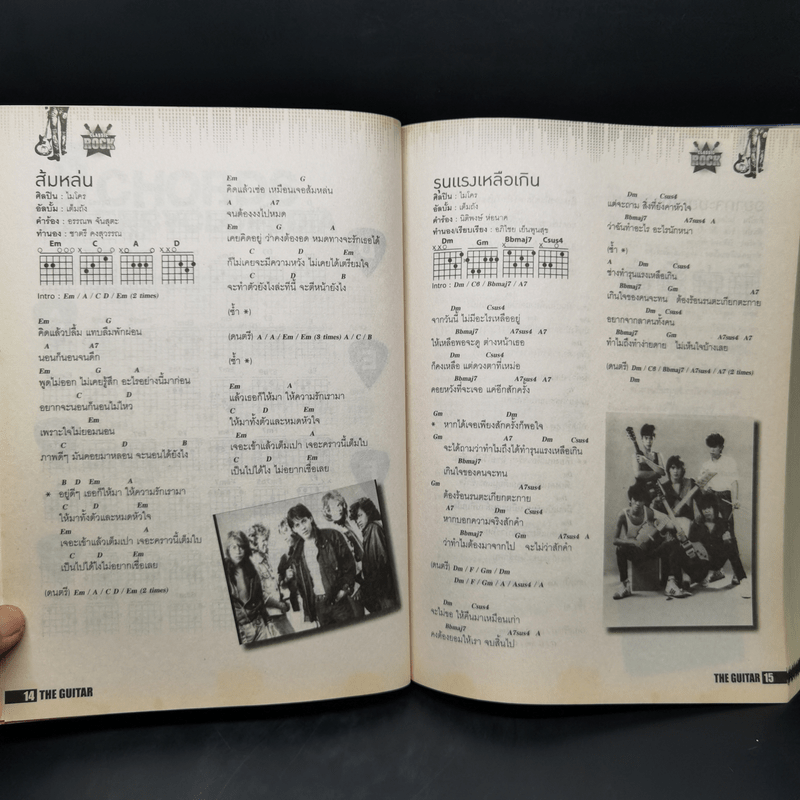 CLASSIC
ROCK
ส้มหล่น
ศิลปิน : ไมโคร
อัลบั้ม : เต็มถัง
คำร้อง : อรรณพ จันสุตะ
ทำนอง : ชาตรี คงสุวรรณ
Em C A D
Intro : Em / A / C D / Em (2 times)
Em
คิดแล้วปลื้ม แทบลืมพักผ่อน
A A7
นอนก็นอนจนดึก
Em G A
พูดไม่ออก ไม่เคยรู้สึก อะไรอย่างนี้มาก่อน
C D
อยากจะนอนก็นอนไม่ไหว
Em
เพราะใจไม่ยอมนอน
C D B
ภาพดีๆ มันคอยมาหลอน จะนอนได้ยังไง
B D Em A
* อยู่ดีๆ เธอก็ให้มา ให้ความรักเรามา
C D Em
ให้มาทั้งตัวและหมดหัวใจ
Em A
เจอะเข้าแล้วเต็มเปา เจอะคราวนี้เต็มใบ
C D Em
เป็นไปได้ไงไม่อยากเชื่อเลย
(ดนตรี) Em / A / C D / Em (2 times)
Em G
คิดแล้วเซ่อ เหมือนเจอส้มหล่น
A A7
จนต้องงงไปหมด
Em G A
เคยคิดอยู่ ว่าคงต้องอด หมดทางจะรักเธอได้
C D Em
ก็ไม่เคยจะมีความหวัง ไม่เคยได้เตรียมใจ
C D B
จะทำตัวยังไงล่ะทีนี้ จะตีหน้ายังไง
(ซ้ำ *)
(ดนตรี) A / A / Em / Em (3 times) A / C / B
(ซ้ำ *)
Em A
แล้วเธอก็ให้มา ให้ความรักเรามา
C D Em
ให้มาทั้งตัวและหมดหัวใจ
Em A
เจอะเข้าแล้วเต็มเปา เจอะคราวนี้เต็มใบ
C D Em
เป็นไปได้ไง ไม่อยากเชื่อเลย
14 THE GUITAR
CLASSIC
ROCK
รุนแรงเหลือเกิน
ศิลปิน : ไมโคร
อัลบั้ม : เต็มถัง
คำร้อง : นิติพงษ์ ห่อนาค
ทำนอง/เรียบเรียง : อภิไชย เย็นพูนสุข
Dm Gm Bbmaj7 Csus4
Intro : Dm / C6 / Bbmaj7 / A7
Dm Csus4
จากวันนี้ ไม่มีอะไรเหลืออยู่
Bbmaj7 A7sus4 A7
ให้เหลือพอจะดู ต่างหน้าเธอ
Dm Csus4
ก็คงเหลือ แต่ดวงตาที่เหม่อ
Bbmaj7 A7sus4 A7
คอยหวังที่จะเจอ แค่อีกสักครั้ง
Gm Dm
* หากได้เจอเพียงสักครั้งก็พอใจ
Gm A7 Dm Csus4
จะได้ถามว่าทำไมถึงได้ทำรุนแรงเหลือเกิน
Bbmaj7
เกินใจของคนจะทน
Gm A7sus4
ต้องร้อนรนตะเกียกตะกาย
A7 Dm Csus4
หากบอกความจริงสักคำ
Bbmaj7 Gm A7sus4 A
ว่าทำไมต้องมาจากไป จะไม่ว่าสักคำ
(ดนตรี) Dm / F / Gm / Dm
Dm / F / Gm / A / Asus4 / A
Dm Csus4
จะไม่ขอ ให้คืนมาเหมือนเก่า
Bbmaj7 A7sus4 A
คงต้องยอมให้เรา จบสิ้นไป
Dm Csus4
แต่จะถาม สิ่งที่ยังคาหัวใจ
Bbmaj7 A7sus4 A
ว่าฉันทำอะไร อะไรนักหนา
(ซ้ำ *)
A Dm Csus4
ช่างทำรุนแรงเหลือเกิน
Bbmaj7 Gm A7
เกินใจของคนจะทน ต้องร้อนรนตะเกียกตะกาย
Dm Csus4
อยากจากลาคนทั้งคน
Bbmaj7 Gm A7sus4 A7
ทำไมถึงทำง่ายดาย ไม่เห็นใจบ้างเลย
(ดนตรี) Dm / C6 / Bbmaj7 / A7sus4 / A7 (2 times)
Dm
THE GUITAR 15